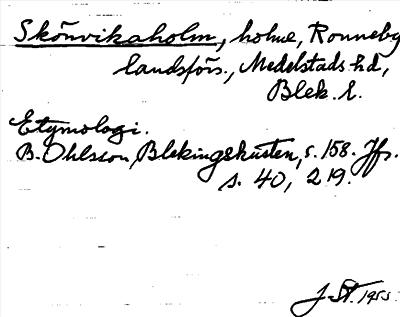 Skönvikaholm, holme, Ronneby
landsförs., Medelstads hd,
Blek. l.
Etymologi.
B. Ohlsson, Blekingekusten, s. 158. Jfr.
s. 40, 219.
J. St. 1955